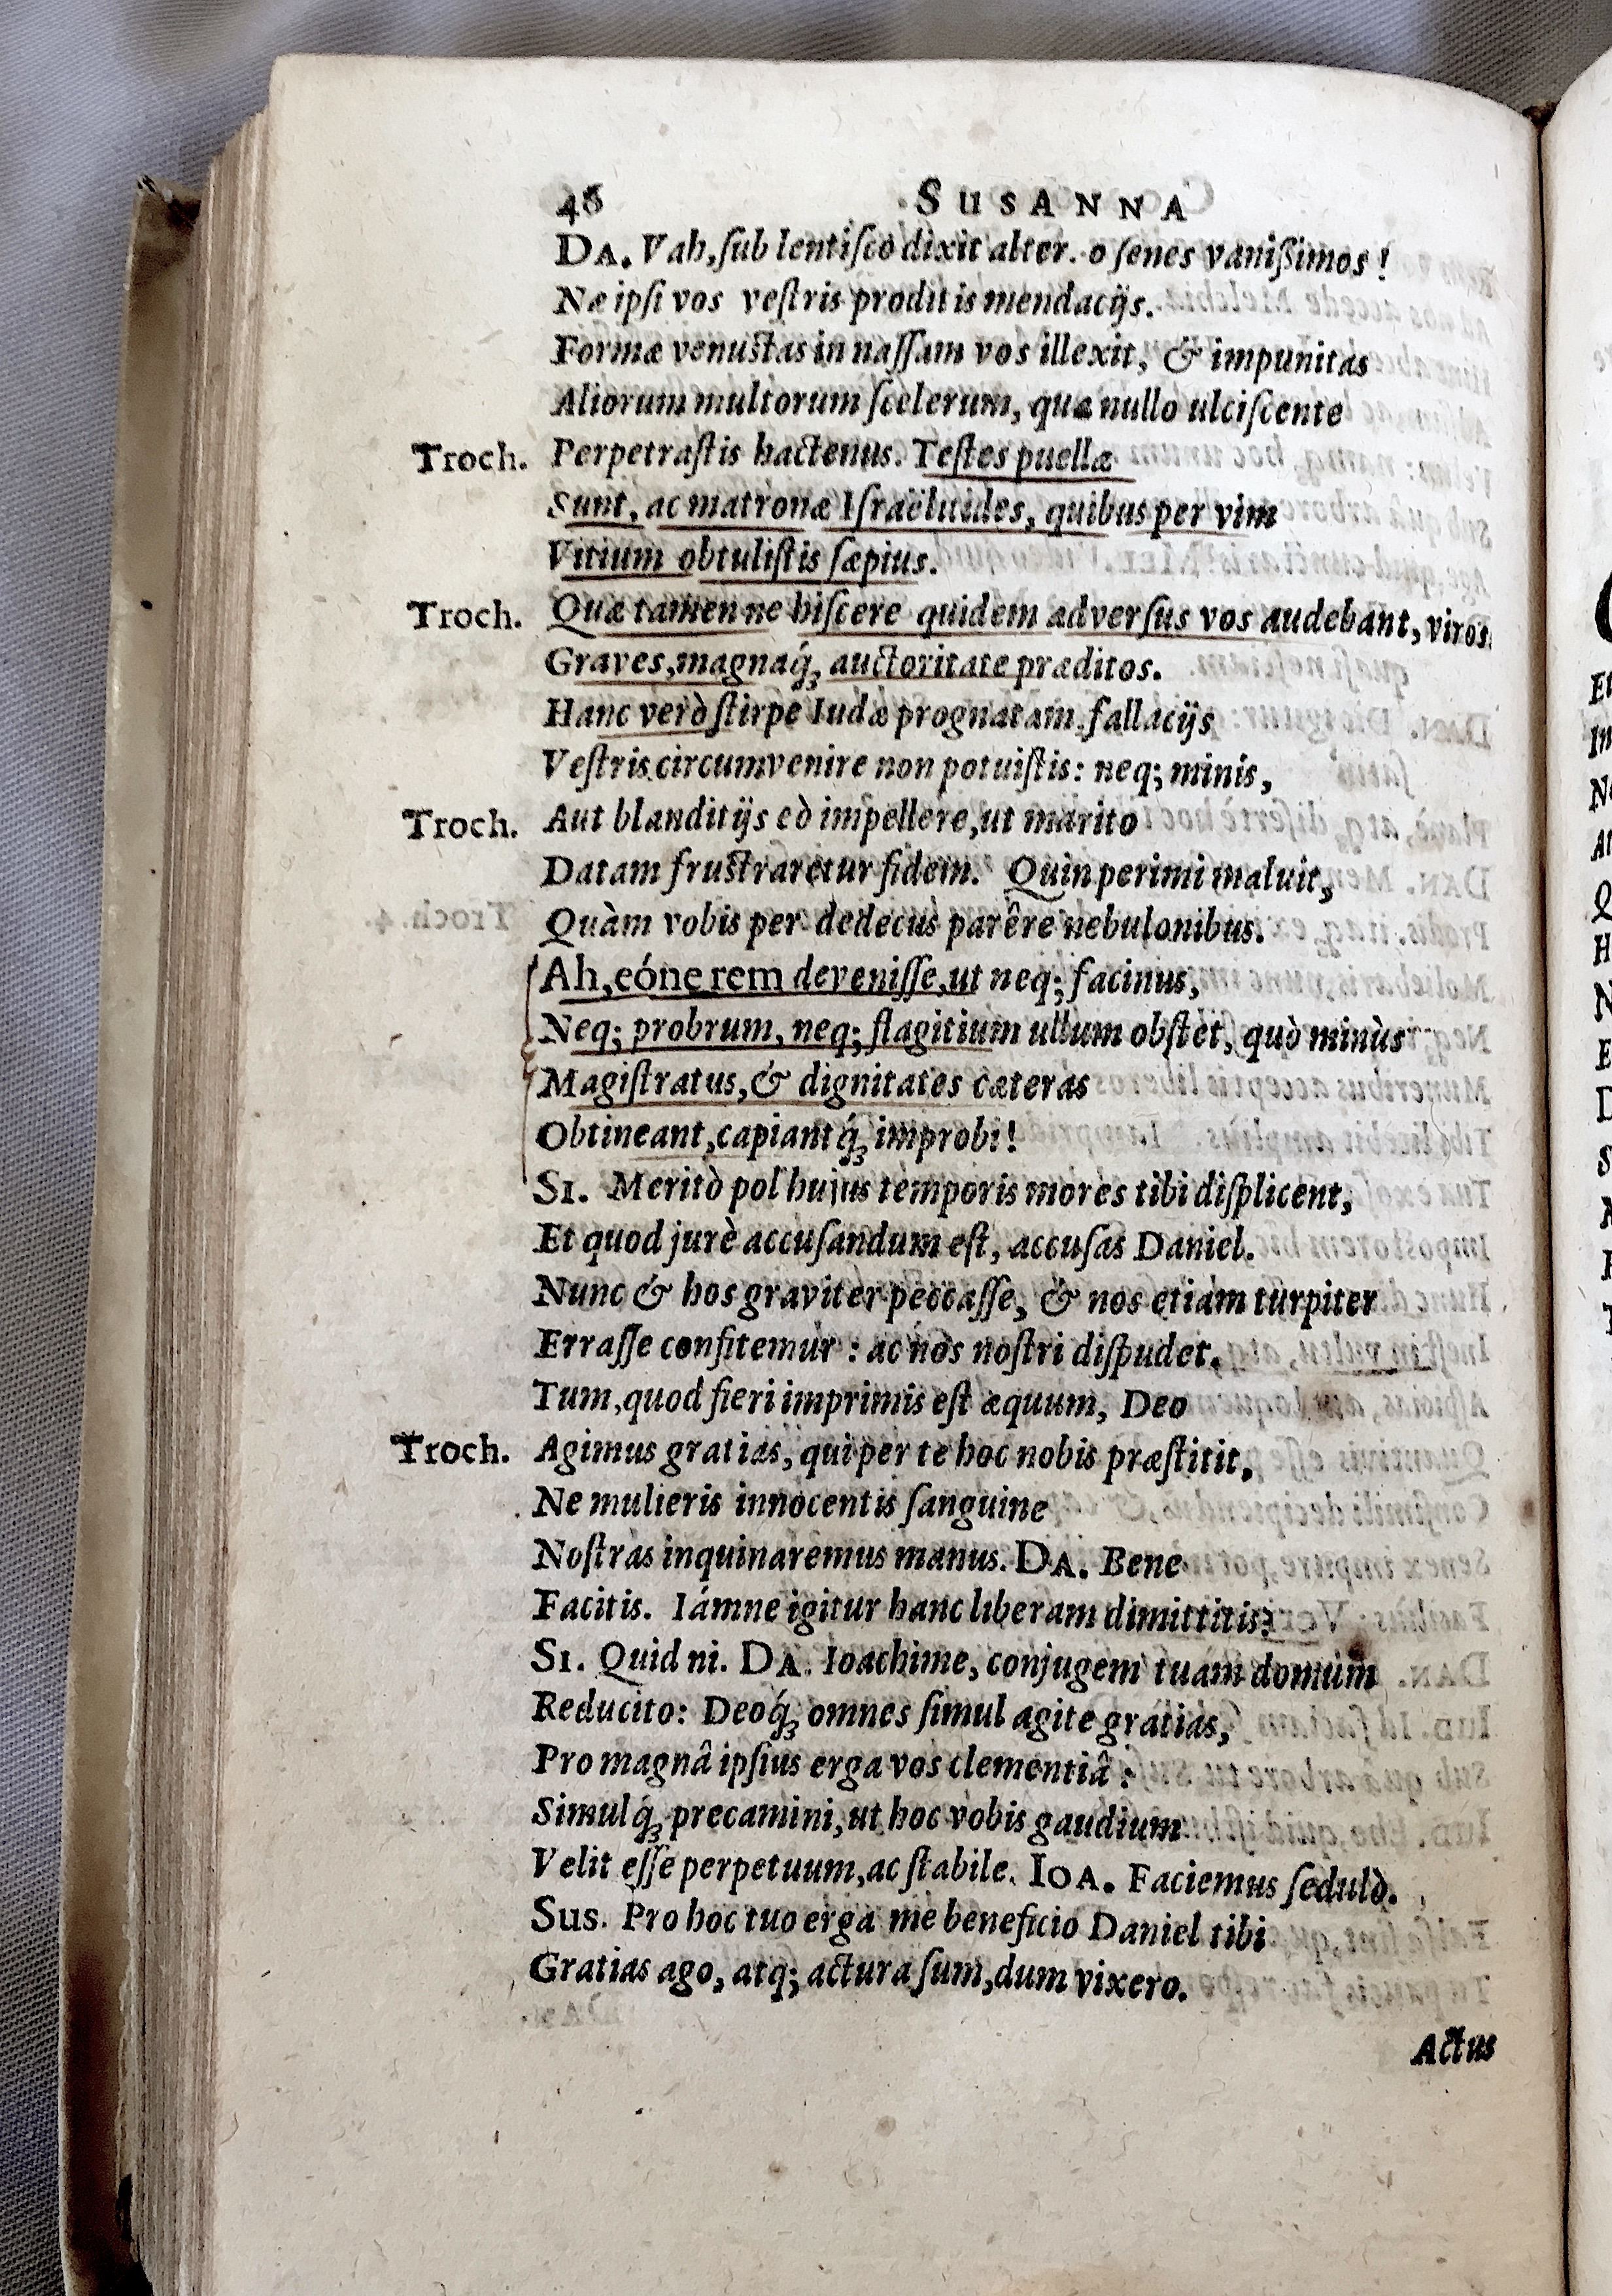 48 SUSANNA
DA. Vah, ſub lentiſco dixit alter. o ſenes vaniſſimos!
Næ ipſi vos veſtris proditis mendacijs.
Formæ venustas in naſſam vos illexit, & impunitas
Aliorum multorum ſcelerum, quæ nullo ulciſcente
Troch. Perpetraſtis hactenus. Teſtes puellæ
Sunt, ac matronæ Iſraëluides, quibus per vim
Vitium obtuliſtis ſæpius.
Troch. Quæ tamen ne hiſcere quidem adverſus vos audebant, viros
Graves, magnaq́; auctoritate præditos.
Hanc verò ſtirpe Iudæ prognatam fallacijs
Veſtris circumvenire non potuiſtis: neq; minis,
Troch. Aut blanditijs eò impellere, ut marito
Datam frustraretur fidem. Quin perimi maluit,
Quàm vobis per dedecus parêre nebulonibus.
Ah, eóne rem deveniſſe, ut neq; facinus,
Neq; probrum, neq; flagitium ullum obſtet, quò minùs
Magiſtratus, & dignitates cæteras
Obtineant, capiantq́; improbi!
SI. Meritò pol hujus temporis mores tibi diſplicent,
Et quod jurè accuſandum eſt, accuſas Daniel.
Nunc & hos graviter peccaſſe, & nos etiam turpiter
Erraſſe confitemur: ac nos noſtri diſpudet.
Tum, quod fieri imprimis eſt æquum, Deo
Troch. Agimus gratias, qui per te hoc nobis præſtitit,
Ne mulieris innocentis ſanguine
Noſtras inquinaremus manus. DA. Bene
Facitis. Iámne igitur hanc liberam dimittitis?
SI. Quid ni. DA. Ioachime, conjugem tuam domum
Reducito: Deoq́; omnes ſimul agite gratias,
Pro magnâ ipſius erga vos clementiâ:
Simulq́; precamini, ut hoc vobis gaudium
Velit eſſe perpetuum, ac ſtabile. IOA. Faciemus ſedulò.
SUS. Pro hoc tuo erga me beneficio Daniel tibi
Gratias ago, atq; actura ſum, dum vixero.
Actus